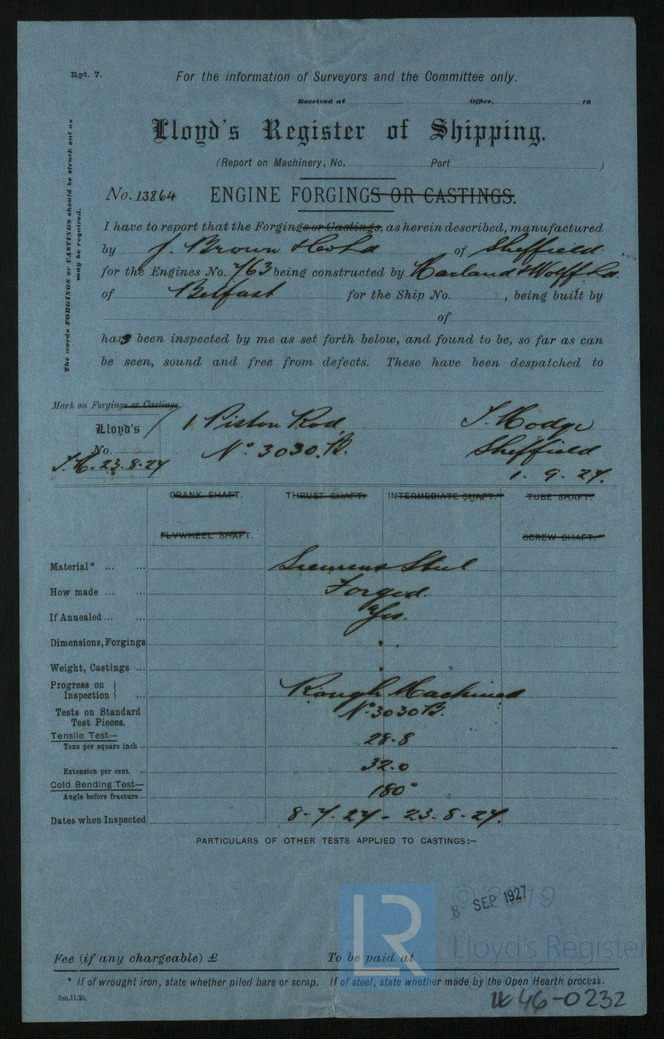 Rpt. 7.
For the information of Surveyors and the Committee only.
Received at Office, 19
Lloyd's Register of Shipping.
(Report on Machinery, No. Port )
The words FORGINGS or CASTINGS should be struck out as
may be required.
No. 13864 ENGINE FORGINGS OR CASTINGS.
I have to report that the Forgings or Castings, as herein described, manufactured
by J. Brown & Co Ld of Sheffield.
for the Engines No. 763 being constructed by Harland & Wolff Ld.
of Belfast for the Ship No. , being built by
of
have been inspected by me as set forth below, and found to be, so far as can
be seen, sound and free from defects. These have been despatched to
Mark on Forgings or Castings
Lloyd's
No.
J.H. 23.8.27
1 Piston Rod.
No 3030.B.
J. Hodge
Sheffield
1.9.27.
CRANK SHAFT. THRUST SHAFT. INTERMEDIATE SHAFT. TUBE SHAFT.
FLYWHEEL SHAFT. SCREW SHAFT.
Material* ... ... Siemens Steel
How made ... ... Forged.
If Annealed ... ... Yes.
Dimensions, Forgings
Weight, Castings ...
Progress on Inspection } ... Rough Machined
Tests on Standard Test Pieces. No 3030B.
Tensile Test—
Tons per square inch ... 28.8
Extension per cent ... 32.0
Cold Bending Test—
Angle before fracture ... 180°
Dates when Inspected 8-7.27 - 23-8-27.
PARTICULARS OF OTHER TESTS APPLIED TO CASTINGS:—
8 SEP 1927
© 2019
LR
Lloyd's Register
Fee (if any chargeable) £ To be paid at
* If of wrought iron, state whether piled bars or scrap. If of steel, state whether made by the Open Hearth process.
46-0232